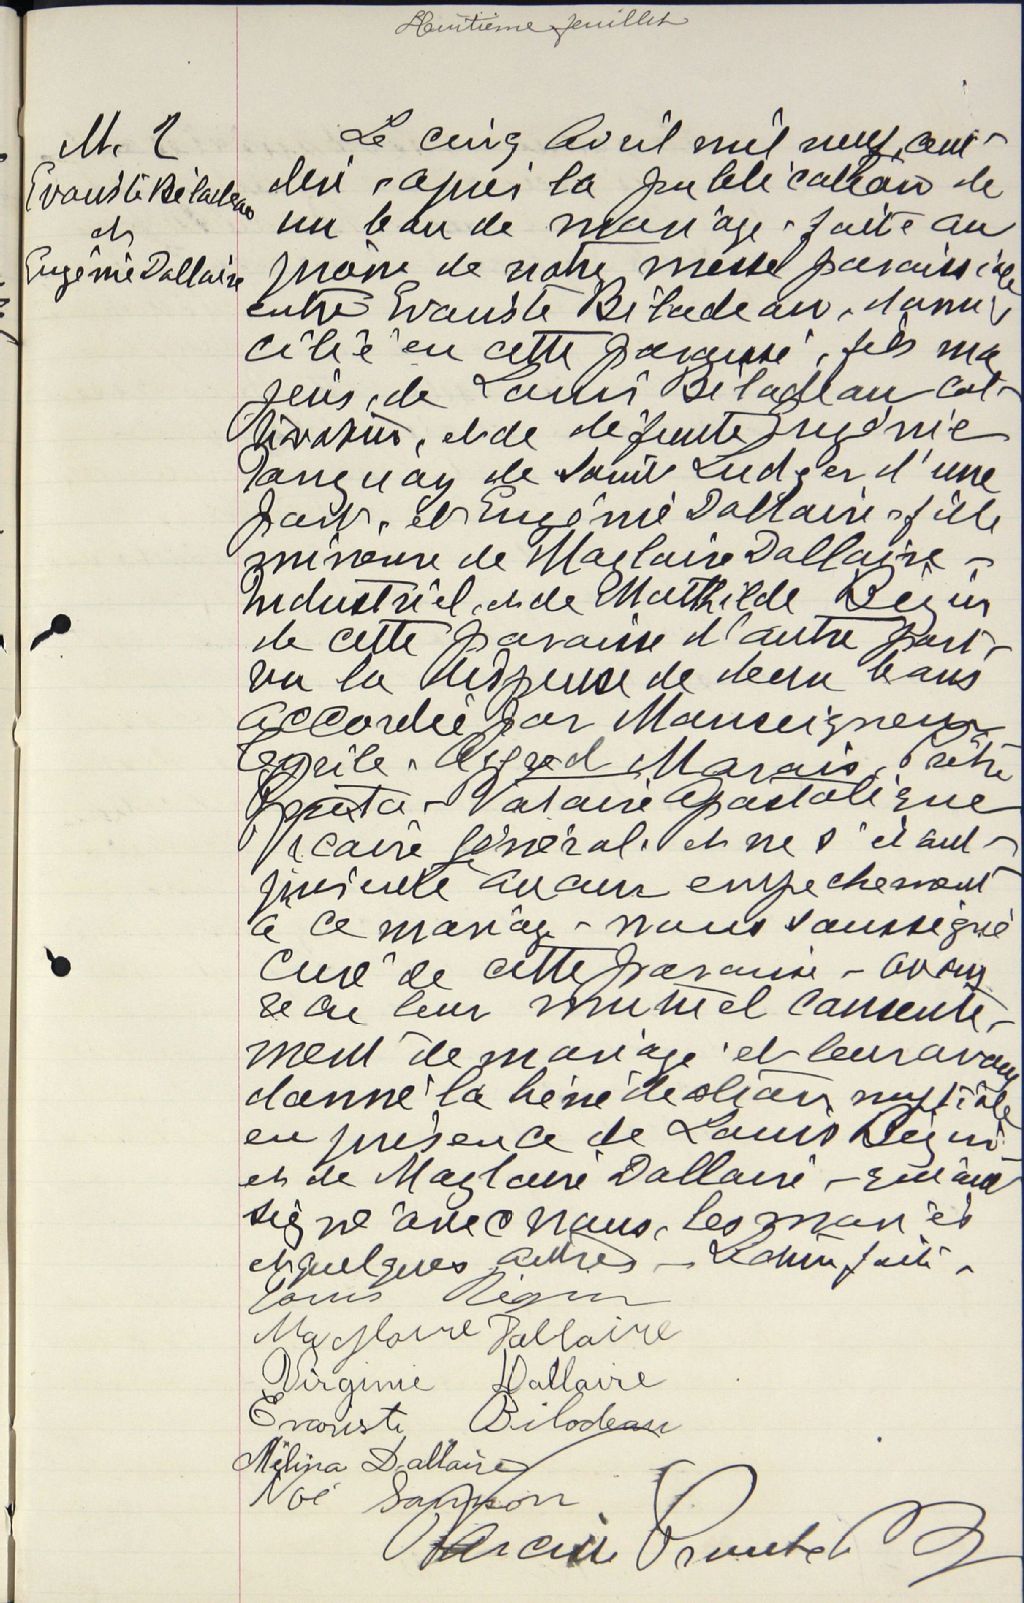 Huitième feuillet
M. 2
Evariste Bilodeau
et
Eugénie Dallaire
Le cinq Avril mil neuf cent
dix, après la publication de
un ban de mariage - faite au
prône de notre messe paroissiale
entre Evariste Bilodeau, domi
cilié en cette paroisse, fils ma
jeur, de Louis Bilodeau cul-
tivateur, et de défunte Eugénie
Tanguay de Saint Ludger d'une
part, et Eugénie Dallaire - fille
mineure de Magloire Dallaire -
Industriel, et de Mathilde Bégin
de cette paroisse d'autre part -
vu la dispense de deux bans
accordée par Monseigneur
Marois, Prêtre
Protonotaire Apostolique
Vicaire Général. et ne s'étant
présenté aucun empechement
à ce mariage - nous soussigné
Curé de cette paroisse - avons
recu leur mutuel consente-
ment de mariage et leur avons
donné la bénédiction nuptiale
en présence de Louis Bégin
et de Magloire Dallaire - qui ont
signé avec nous, les mariés
et quelques autres - Lecture faite -
Louis Bégin
Magloire Dallaire
Virginie Dallaire
Evariste Bilodeau
Mélina Dallaire
Noé Samson